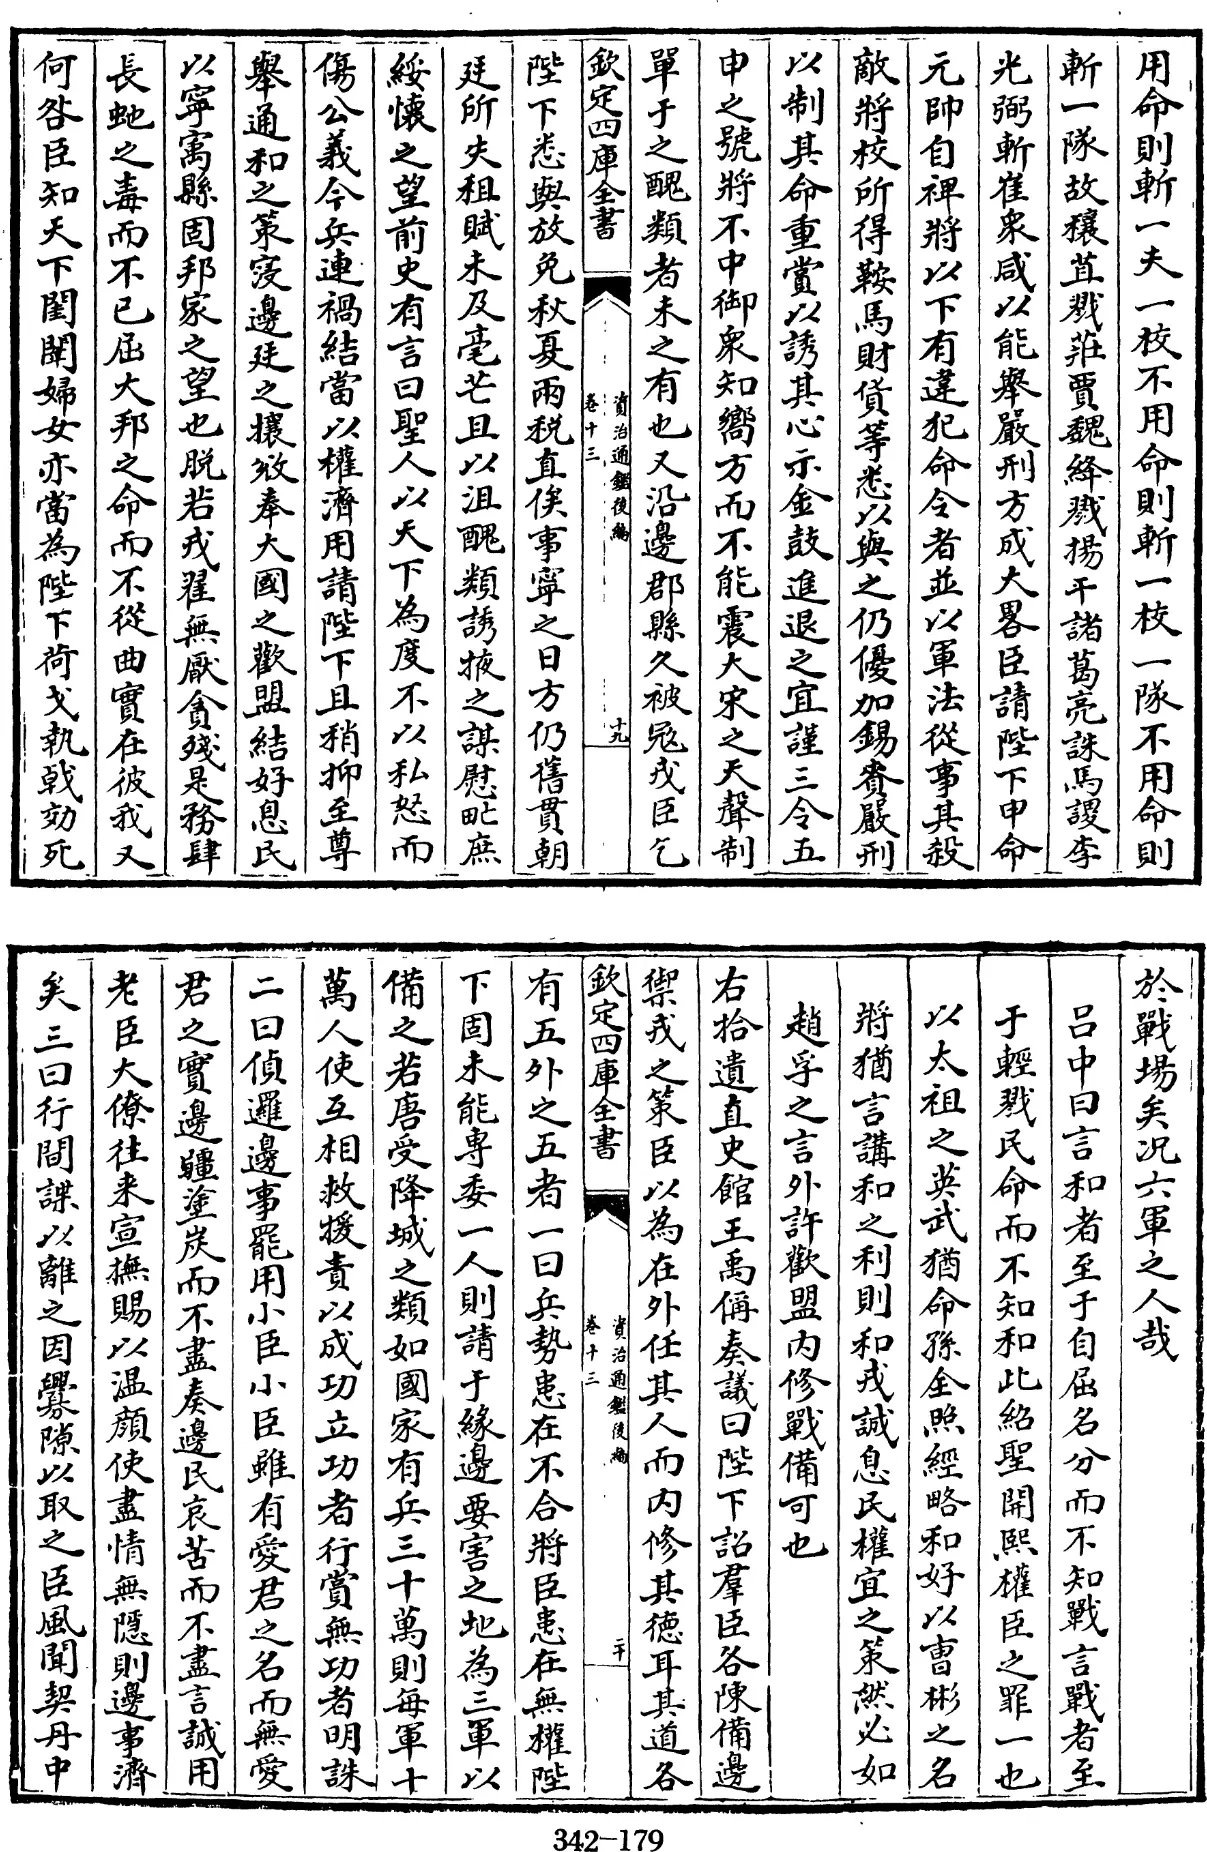 用命則斬一夫一校不用命則斬一校一隊不用命則
斬一隊故穰苴戮莊賈魏絳戮揚干諸葛亮誅馬謖李
光弼斬崔衆咸以能舉嚴刑方成大畧臣請陛下申命
元帥自裨將以下有違犯命令者並以軍法從事其殺
敵將校所得鞍馬財貨等悉以與之仍優加錫賚嚴刑
以制其命重賞以誘其心示金鼓進退之宜謹三令五
申之號將不中御衆知嚮方而不能震大宋之天聲制
單于之醜類者未之有也又沿邊郡縣久被寇戎臣乞
欽定四庫全書
資治通鑑後編
卷十三
十九
陛下悉與放免秋夏兩稅直俟事寧之日方仍舊貫朝
廷所失租賦未及毫芒且以沮醜類誘掖之謀慰甿庶
綏懷之望前史有言曰聖人以天下為度不以私怒而
傷公義今兵連禍結當以權濟用請陛下且稍抑至尊
舉通和之策寖邊廷之攘敚奉大國之歡盟結好息民
以寧寓縣固邦家之望也脱若戎翟無厭貪殘是務肆
長虵之毒而不已屈大邦之命而不從曲實在彼我又
何咎臣知天下閨閫婦女亦當為陛下荷戈執戟効死
於戰場矣况六軍之人哉
吕中曰言和者至于自屈名分而不知戰言戰者至
于輕戮民命而不知和此紹聖開熙權臣之罪一也
以太祖之英武猶命孫全照經略和好以曹彬之名
將猶言講和之利則和戎誠息民權宜之策然必如
趙孚之言外許歡盟内修戰備可也
右拾遺直史館王禹偁奏議曰陛下詔羣臣各陳備邊
禦戎之策臣以為在外任其人而内修其徳耳其道各
欽定四庫全書
資治通鑑後編
卷十三
二十
有五外之五者一曰兵勢患在不合將臣患在無權陛
下固未能専委一人則請于緣邊要害之地為三軍以
備之若唐受降城之類如國家有兵三十萬則每軍十
萬人使互相救援責以成功立功者行賞無功者明誅
二曰偵邏邊事罷用小臣小臣雖有愛君之名而無愛
君之實邊疆塗炭而不盡奏邊民哀苦而不盡言誠用
老臣大僚往来宣撫賜以温顔使盡情無隱則邊事濟
矣三曰行間諜以離之因釁隙以取之臣風聞契丹中
342-179